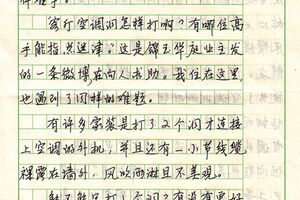 客厅空调洞怎样打啊？有哪位高
手能指点迷津。这是锦玉华庭业主发
的一条微博在向人求助。我住在这里，
也遇到了同样的难题。
有许多家装是打了2个洞才连接
上空调的外机，并且还有一小节线缆
裸露在墙外，风吹雨淋且不美观。